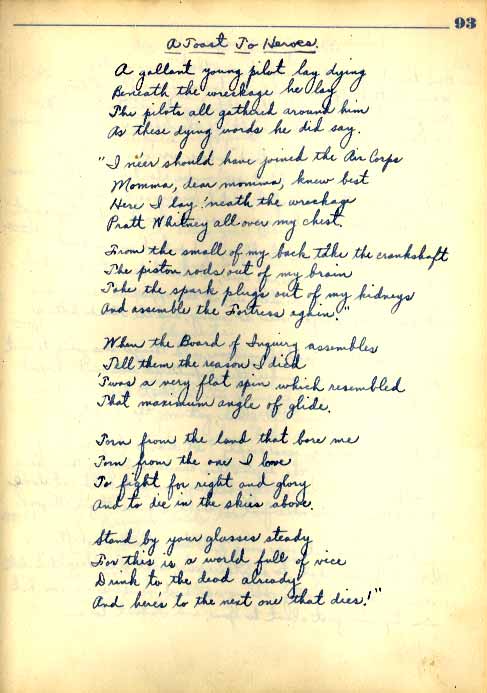 93
A Toast To Heroes.
A gallant young pilot lay dying
Beneath the wreckage he lay
The pilots all gathered around him
As these dying words he did say.
"I ne'er should have joined the Air Corps
Momma, dear momma, knew best
Here I lay 'neath the wreckage
Pratt Whitney all over my chest.
From the small of my back take the crankshaft
The piston rods out of my brain
Take the spark plugs out of my kidneys
And assemble the Fortress again."
When the Board of Inquiry assembles
Tell them the reason I died
'Twas a very flat spin which resembled
That maximum angle of glide.
Torn from the land that bore me
Torn from the one I love
To fight for right and glory
And to die in the skies above.
Stand by your glasses steady
For this is a world full of vice
Drink to the dead already
And here's to the next one that dies!"